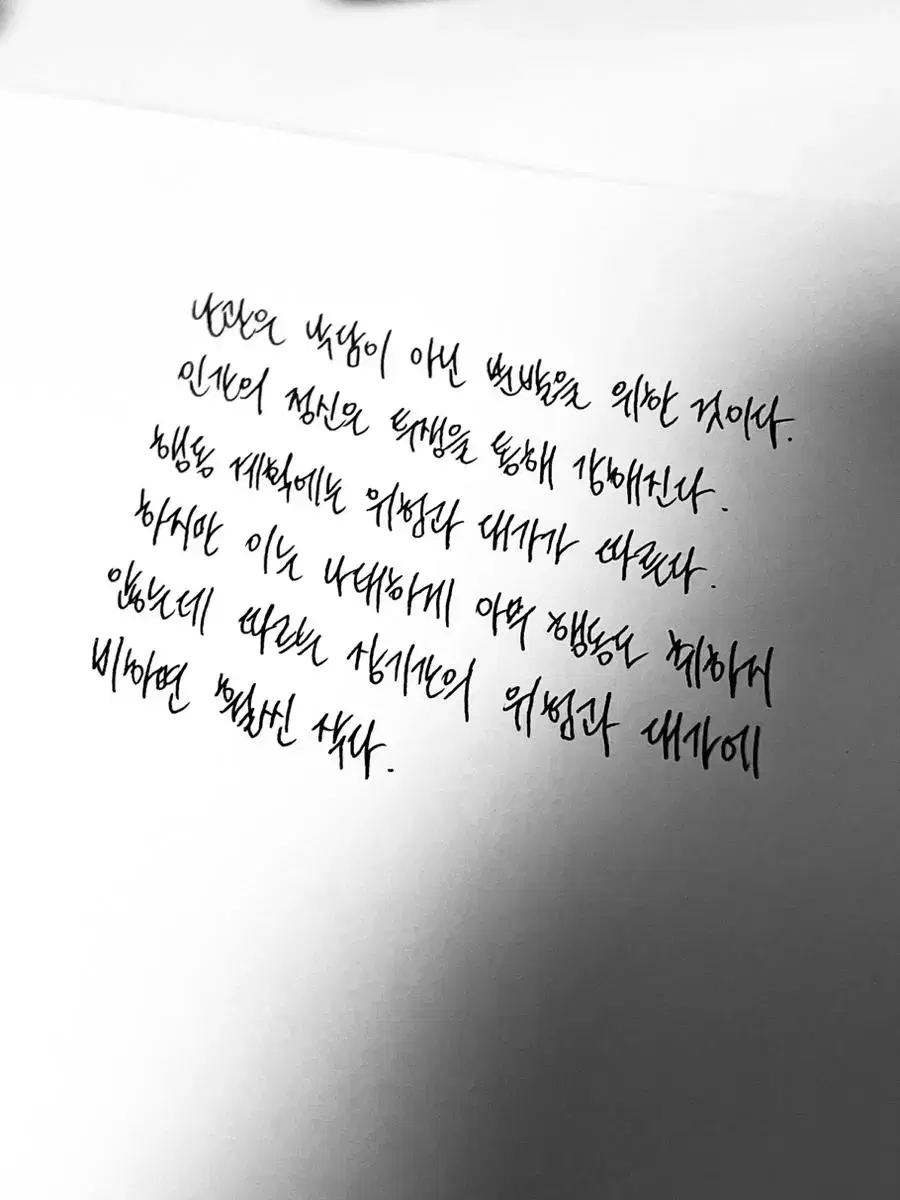 난관은 낙담이 아닌 분발을 위한 것이다.
인간의 정신은 투쟁을 통해 강해진다.
행동 계획에는 위험과 대가가 따른다.
하지만 이는 나태하게 아무 행동도 취하지
않는데 따르는 장기간의 위험과 대가에
비하면 훨씬 작다.